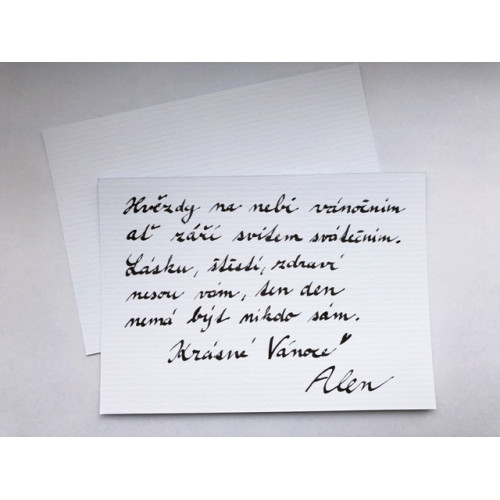 Hvězdy na nebi vánočním
ať září svitem svátečním.
Lásku, štěstí, zdraví
nesou vám, ten den
nemá být nikdo sám.
Krásné Vánoce
Alen